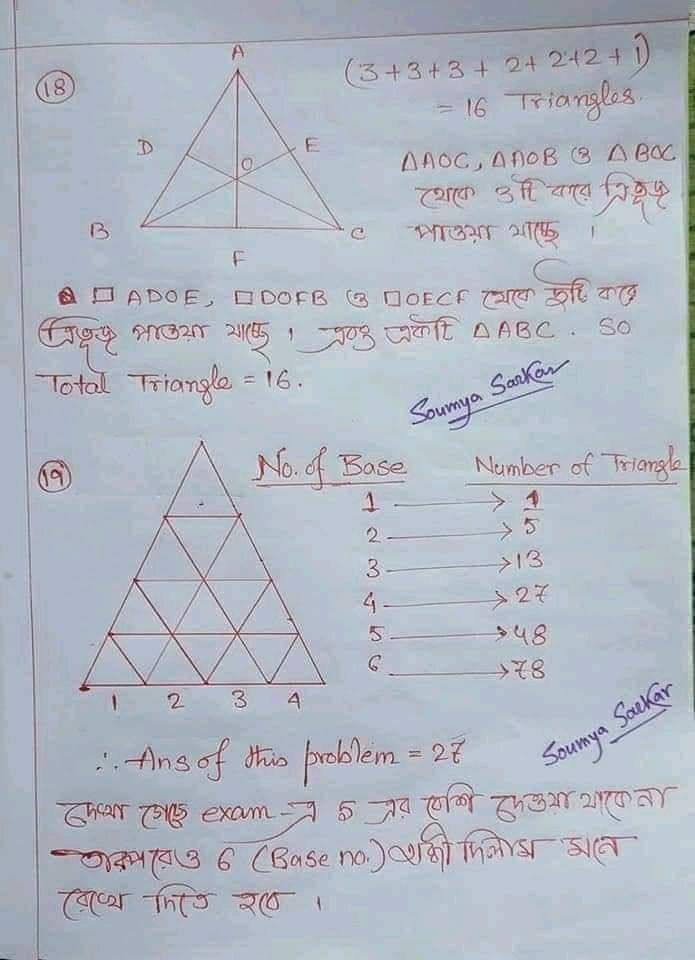 18
A
(3+3+3+ 2+ 2+2+1)
= 16 Triangles.
D
O
E
B
C
F
△AOC, △AOB ও △BOC
থেকে ৩টি করে ত্রিভুজ
পাওয়া যাচ্ছে ।
□ ADOE, □DOFB ও □OECF থেকে দুটি করে
ত্রিভুজ পাওয়া যাচ্ছে । এবং একটি △ABC. SO
Total Triangle = 16.
Soumya Sarkar
19
No. of Base Number of Triangle
1 → 1
2 → 5
3 → 13
4 → 27
5 → 48
6 → 78
1 2 3 4
Soumya Sarkar
∴ Ans of this problem = 27
দেখা গেছে exam-এ 5 এর বেশি দেওয়া থাকে না
তারপরেও 6 (Base no.) দিলাম মনে
রেখে দিতে হবে ।